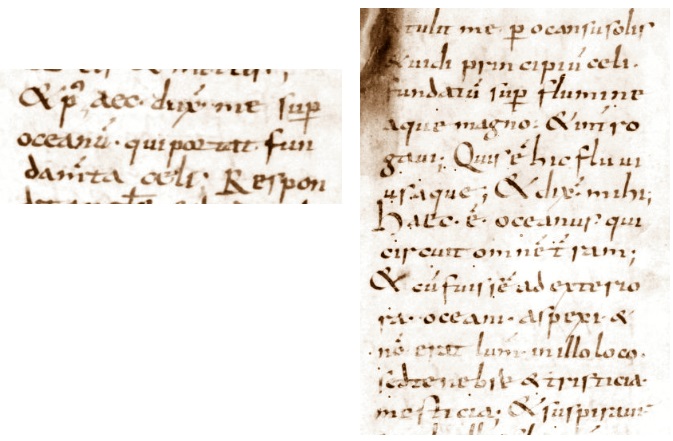 & p⁹ aec· dux̅· me sup̅
oceanu̅· qui portat· fun
dam̅ta celi· Respon
tulit me· p̅ ocansusolis
& uidi principiu̅ celi·
fundatu̅ sup̅ flumine
aque magno· & int̅ro
gaui; Quis e̅ hic fluui
us aque; & dix̅· mihi;
Haec· e̅· oceanus· qui
circuit omne̅ t̅ram;
& cu̅ fuisse̅ ad exterio
ra· oceani· aspexi· &
no̅ erat lum̅· in illo loco·
sed tenebre & tristicia·
mesticia; & suspiraui·